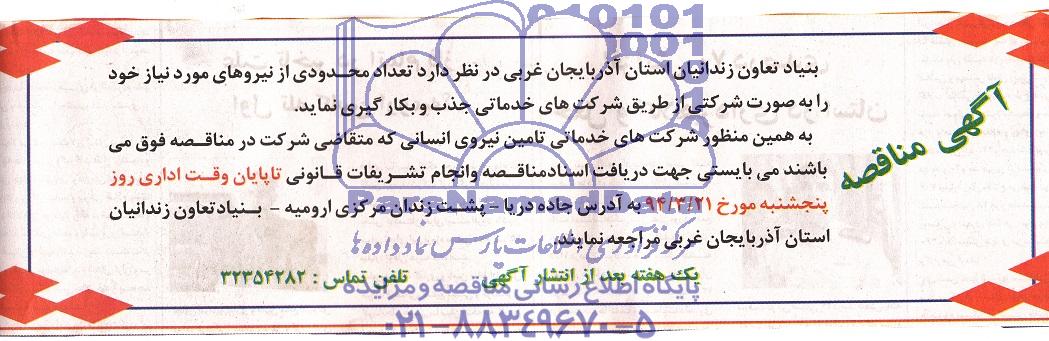 آگهی مناقصه
بنیاد تعاون زندانیان استان آذربایجان غربی در نظر دارد تعداد محدودی از نیروهای مورد نیاز خود
را به صورت شرکتی از طریق شرکت های خدماتی جذب و بکار گیری نماید.
به همین منظور شرکت های خدماتی تامین نیروی انسانی که متقاضی شرکت در مناقصه فوق می
باشند می بایستی جهت دریافت اسنادمناقصه وانجام تشریفات قانونی تاپایان وقت اداری روز
پنجشنبه مورخ ۹۴/۳/۲۱ به آدرس جاده دریا - پشت زندان مرکزی ارومیه - بنیادتعاون زندانیان
استان آذربایجان غربی مراجعه نمایند.
یک هفته بعد از انتشار آگهی تلفن تماس : ۳۲۳۵۴۲۸۲
ParsNamadData
مرکز فرآوری اطلاعات پارس نماد داده ها
پایگاه اطلاع رسانی مناقصه و مزایده
۰۲۱-۸۸۳۴۹۶۷۰-۵